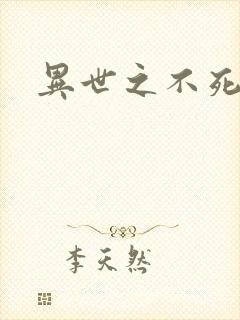 異世之不死
李天然